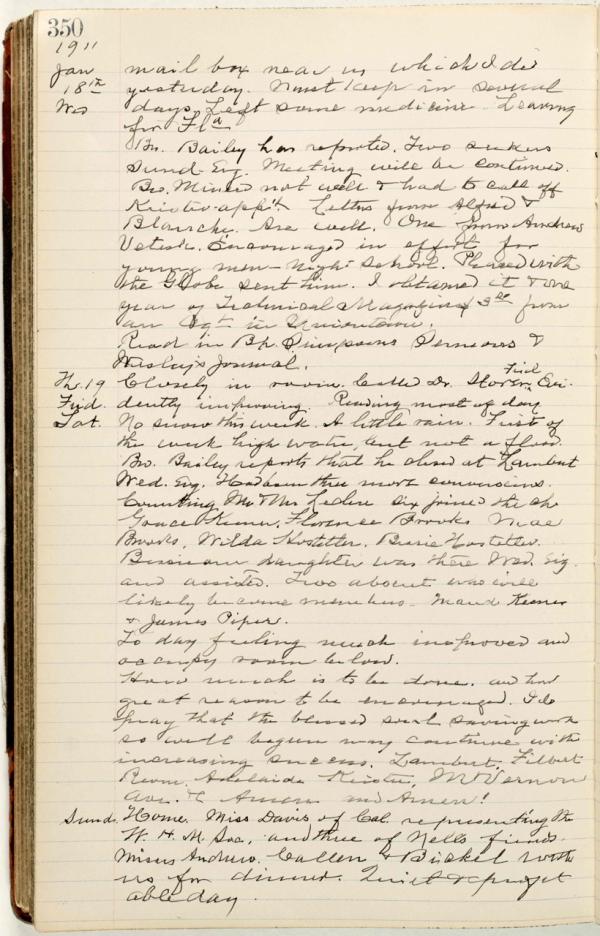 350
1911
Jan mail box near us which I did
18th yesterday. Must keep in several
Wes days. Left some medicine. Leaving
for Fla
Bro. Bailey has reported. Two seekers
Sund. Evg. Meeting will be continued.
Bro. not well & had to call off
appt. Letters from Alfred &
Blanche. Are well. One from Andrew
Encouraged in effort for
young men - night school. Pleased with
the Globe sent him. I obtained it & one
year of Technical Magazine 3.00 from
an Agt. in Uniontown.
Read in Bp. Simpsons Sermons &
Wesley's Journal.
Th. 19 Closely in room. Called Dr. Storer Frid. Evi-
Frid. dently improving. Reading most of day
Sat. No snow this week. A little rain. First of
the week high water, but not a flood.
Bro. Bailey reports that he closed at Lambert
Wed. Evg. Had been three more conversions.
Counting Mr & Mrs six joined the ch
Grace Keener, Florence Brooks Mae
Brooks, Wilda Hostetler, Bessie Hostetler.
daughter was there Wed. Evg.
and assisted. Two absent ones will
likely become members - Maud Keener
& James Piper.
To day feeling much improved and
occupy room below.
How much is to be done. and how
great reason to be encouraged. I do
pray that the blessed soul saving work
so well begun may continue with
increasing success. Lambert, Filbert
Adelaide Mt Vernon
Ave. &c Amen and Amen!
Sund. Home. Miss Davis of Cal. representing the
W. H. M. Soc, and three of Nells friends.
Misses Andrews. Callen & Bickel with
us for dinner. Quiet & profit
able day.